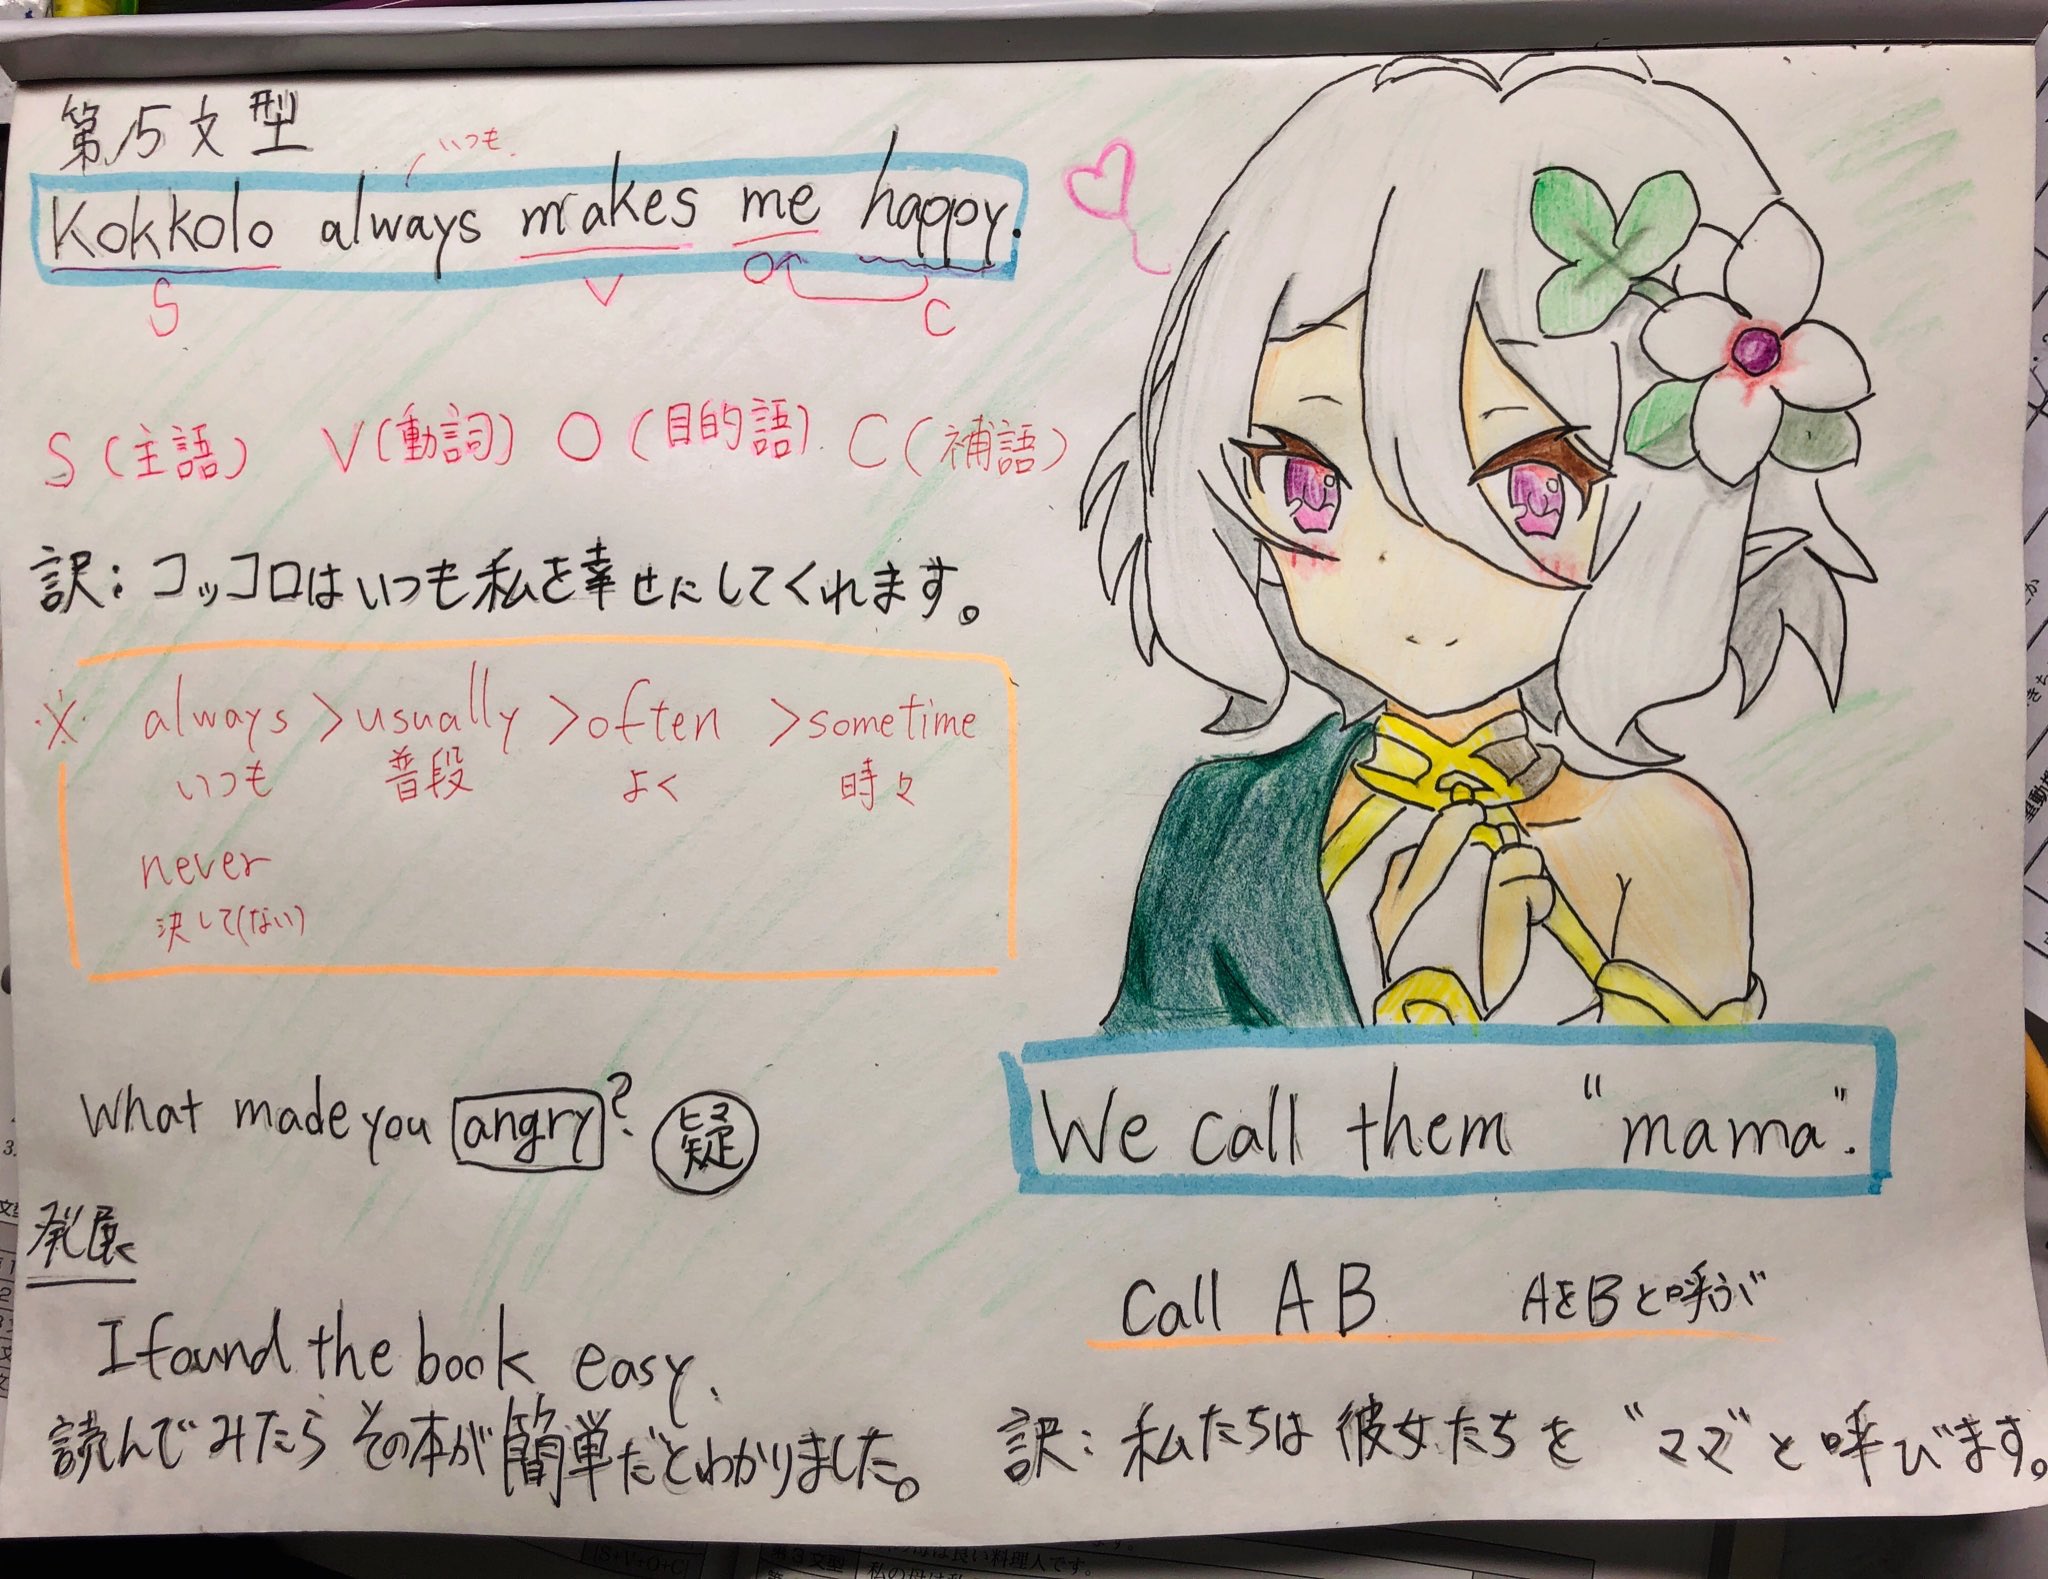 第5文型
いつも
Kokkolo always makes me happy.
S V O C
S(主語) V(動詞) O(目的語) C(補語)
訳:コッコロはいつも私を幸せにしてくれます。
※ always > usually > often > sometime
いつも 普段 よく 時々
never
決して(ない)
What made you angry? 疑
発展
I found the book easy.
読んでみたらその本が簡単だとわかりました。
We call them "mama".
Call A B AをBと呼ぶ
訳:私たちは彼女たちを"ママ"と呼びます。
[S+V+O+C]
第3文型